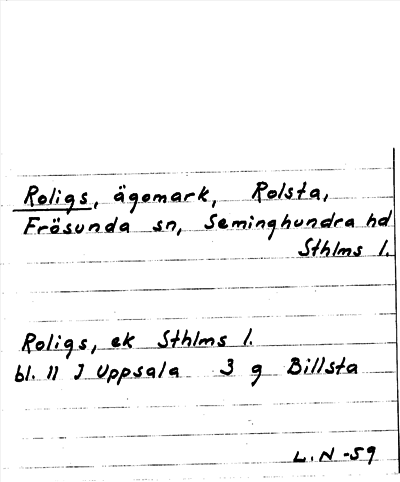 Roligs, ägomark, Rolsta,
Frösunda sn, Seminghundra hd
Sthlms l.
Roligs, ek Sthlms l.
bl. 11 J Uppsala 3 g Billsta
L.N -59